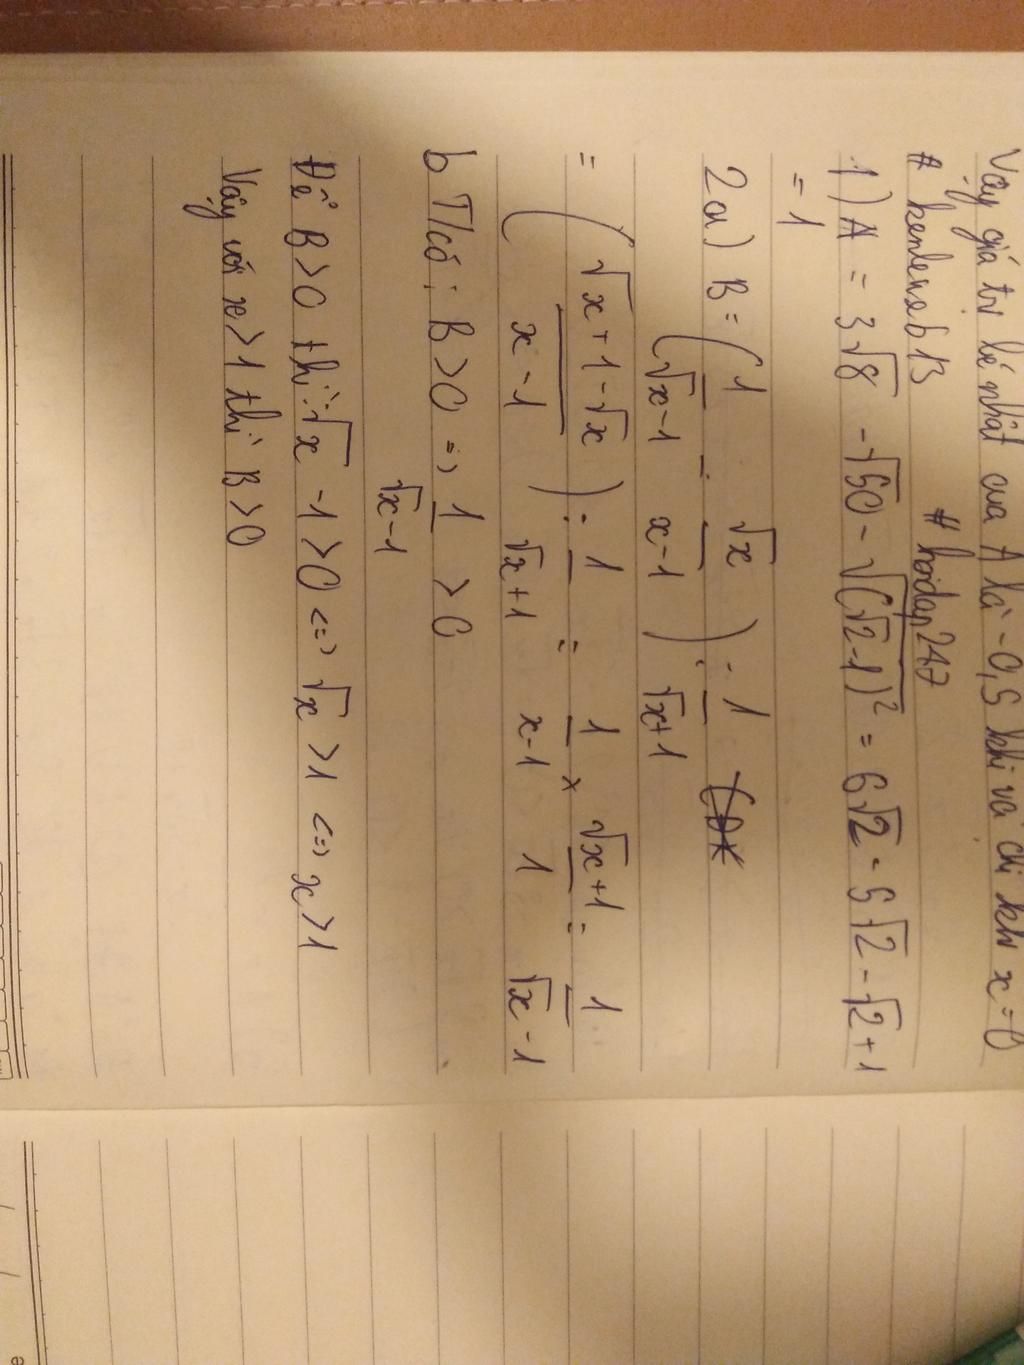 Vậy giá trị bé nhất của A là -0,5 khi và chỉ khi x=0
# kenlensb13 # hoidap247
1) A = 3√8 - √50 - √(√2-1)² = 6√2 - 5√2 - √2+1
= 1
2a) B = (1/(√x-1) - √x/(x-1)) : 1/(√x+1)
= ((√x+1-√x)/(x-1)) : 1/(√x+1) = 1/(x-1) × (√x+1)/1 = 1/(√x-1)
b T/có : B>0 => 1/(√x-1) > 0
Để B>0 thì: √x -1>0 <=> √x >1 <=> x>1
Vậy với x>1 thì B>0